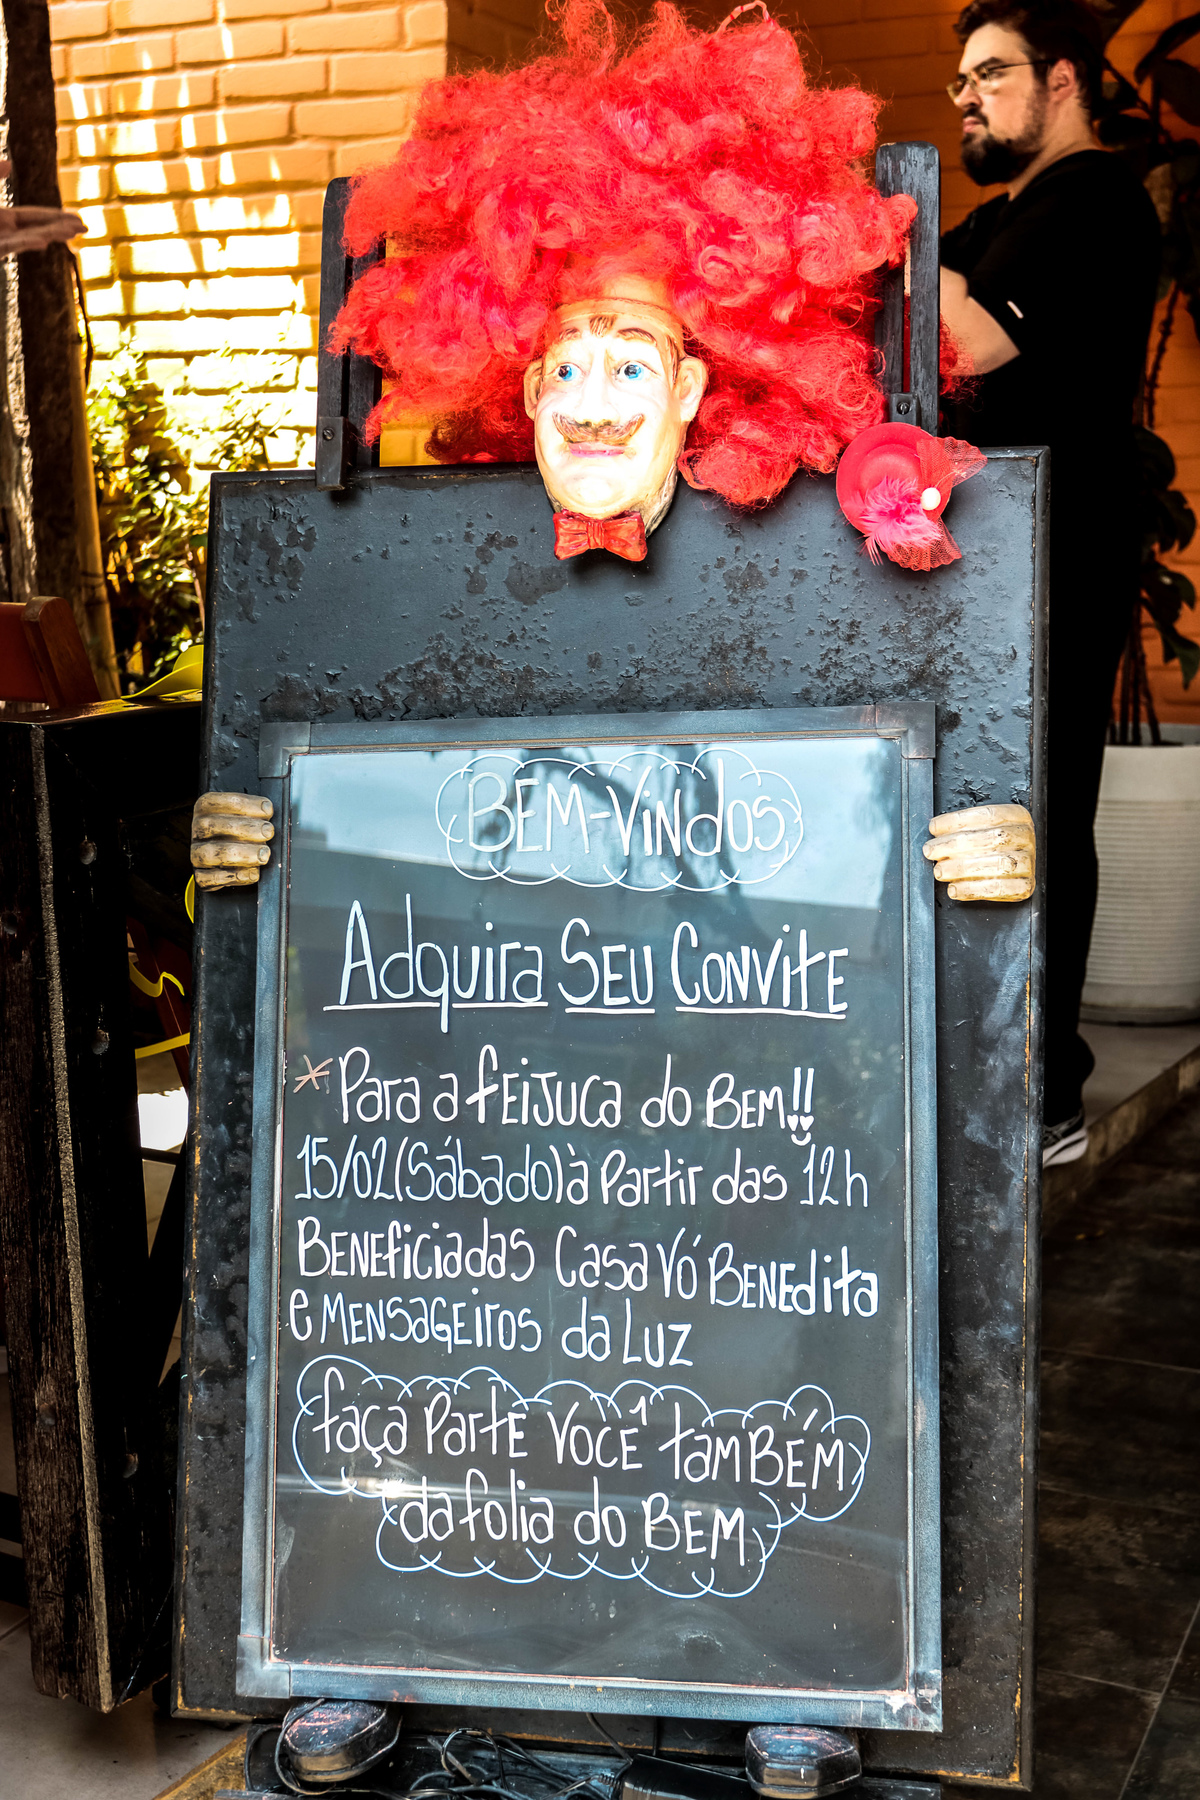 BEM-VINdOS
Adquira SEU CONVitE
*Para a fEiJUca do BEM!!
15/02(Sábado)à Partir das 12h
BENEficiadas Casa Vó BENEdita
e MENSaGEiros da LUZ
faça PartE VOCÊ tamBÉM
da folia do BEM